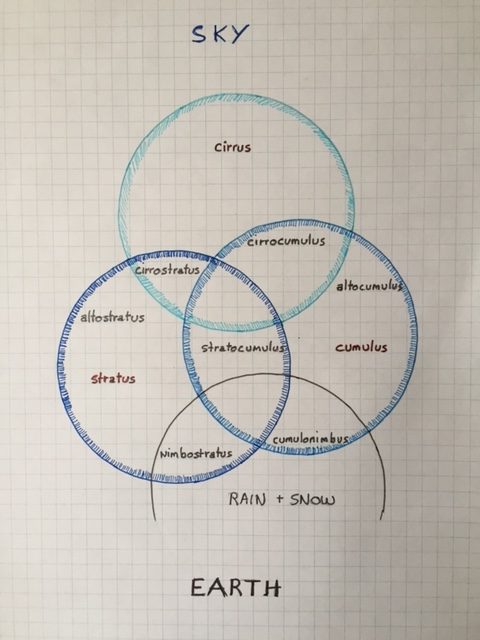 SKY
cirrus
cirrocumulus
cirrostratus
altocumulus
altostratus
stratocumulus
cumulus
stratus
cumulonimbus
nimbostratus
RAIN + SNOW
EARTH